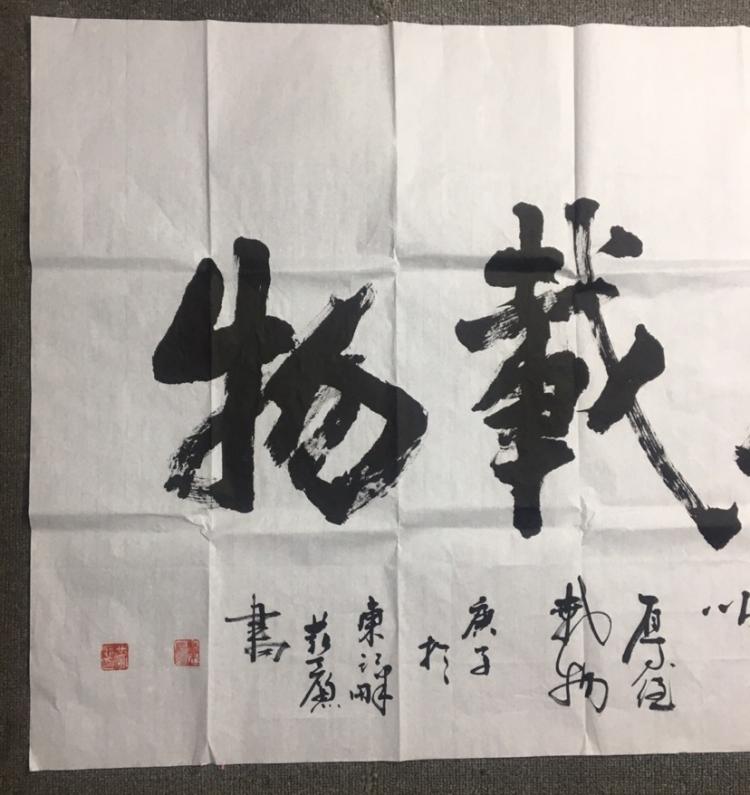 載物
厚德
載物
庚子
於
東江畔
書